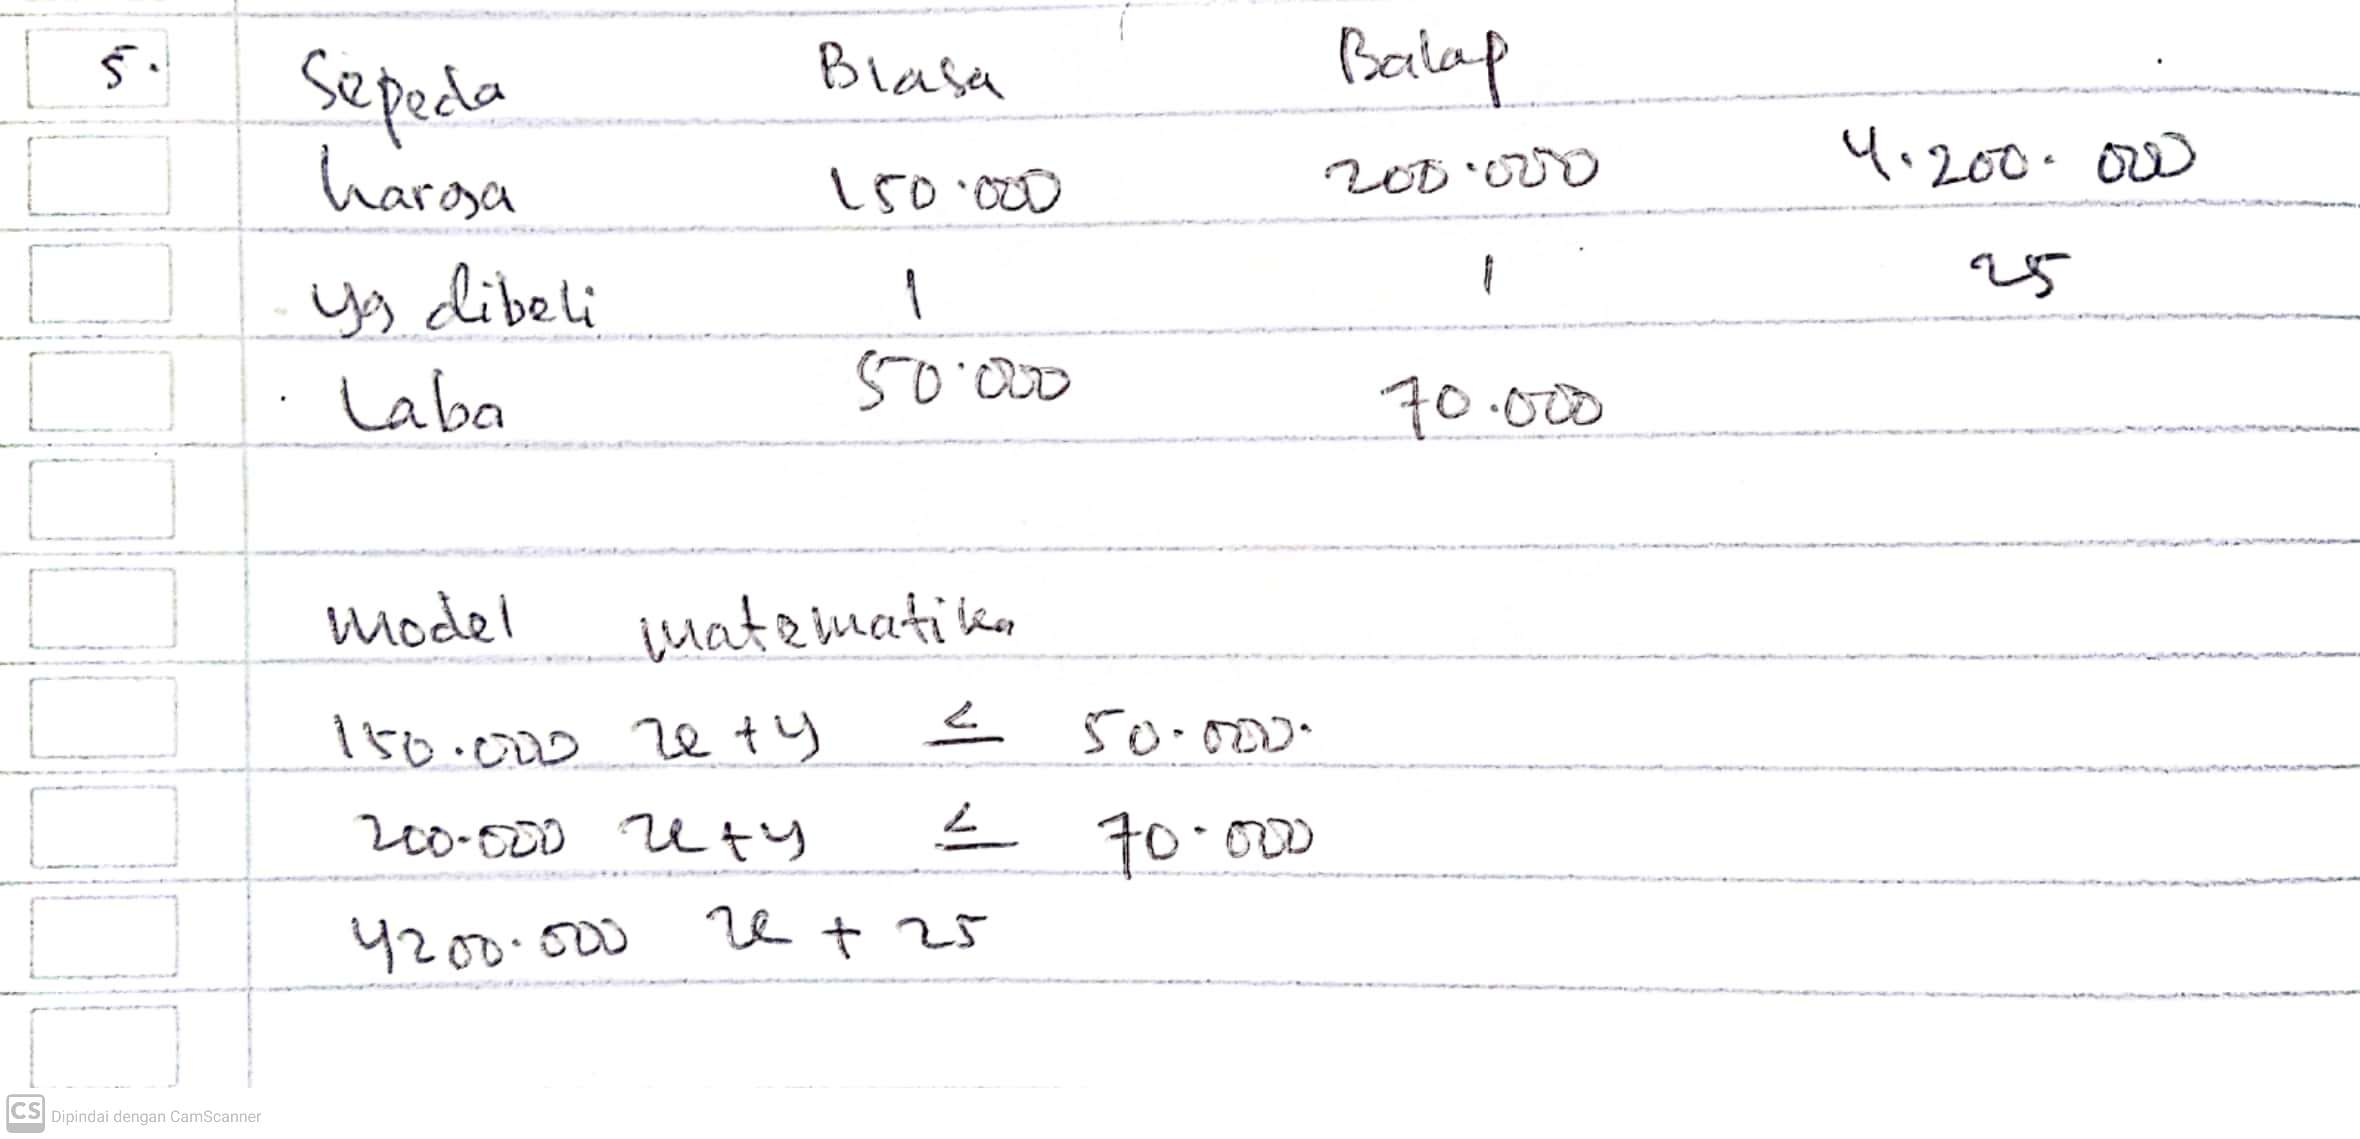 5. Sepeda Biasa Balap
harga 150.000 200.000 4.200.000
yg dibeli 1 1 25
Laba 50.000 70.000
Model matematika
150.000 x + y ≤ 50.000.
200.000 x + y ≤ 70.000
4200.000 x + 25
CS Dipindai dengan CamScanner